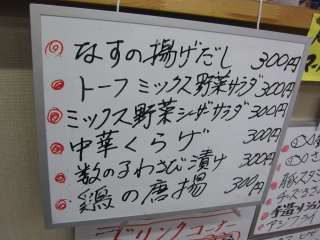 なすの揚げだし 300円
トーフミックス野菜サラダ 300円
ミックス野菜シーザーサラダ 300円
中華くらげ 300円
数の子わさび漬け 300円
鶏の唐揚 300円
ドリンクコーナー